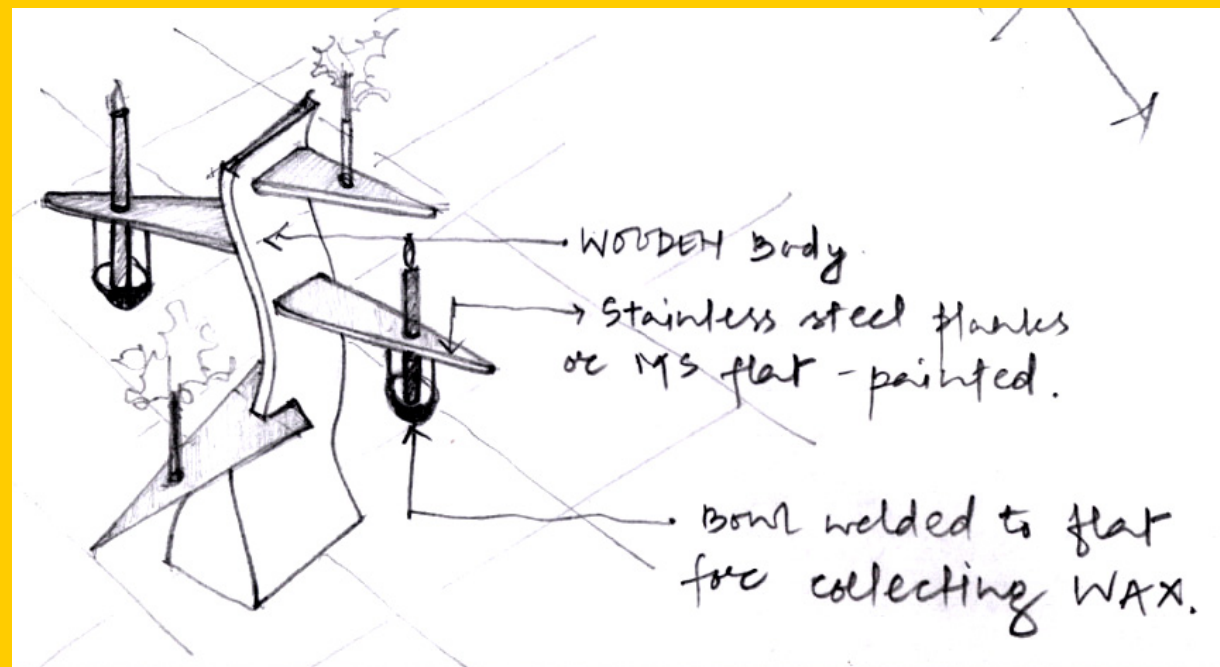 WOODEN Body
Stainless steel planks
or MS flat - painted.
Bowl welded to flat
for collecting WAX.